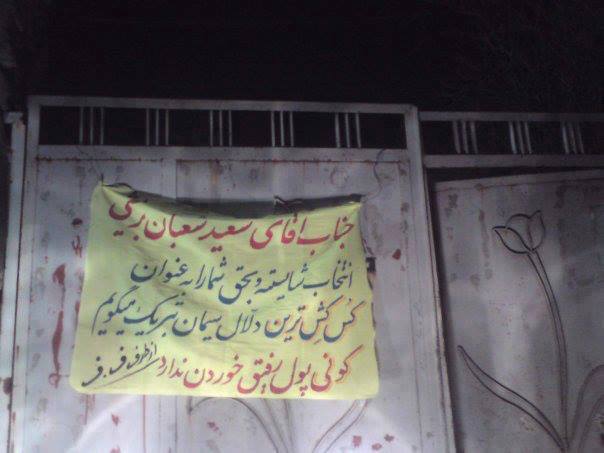 جناب آقای سعید شعبان بزنی
انتخاب شایسته و بحق شما را به عنوان
کس کش ترین دلال سیمان تبریک میگویم
کونی پول رفیق خوردن ندارد از طرف ف.ف